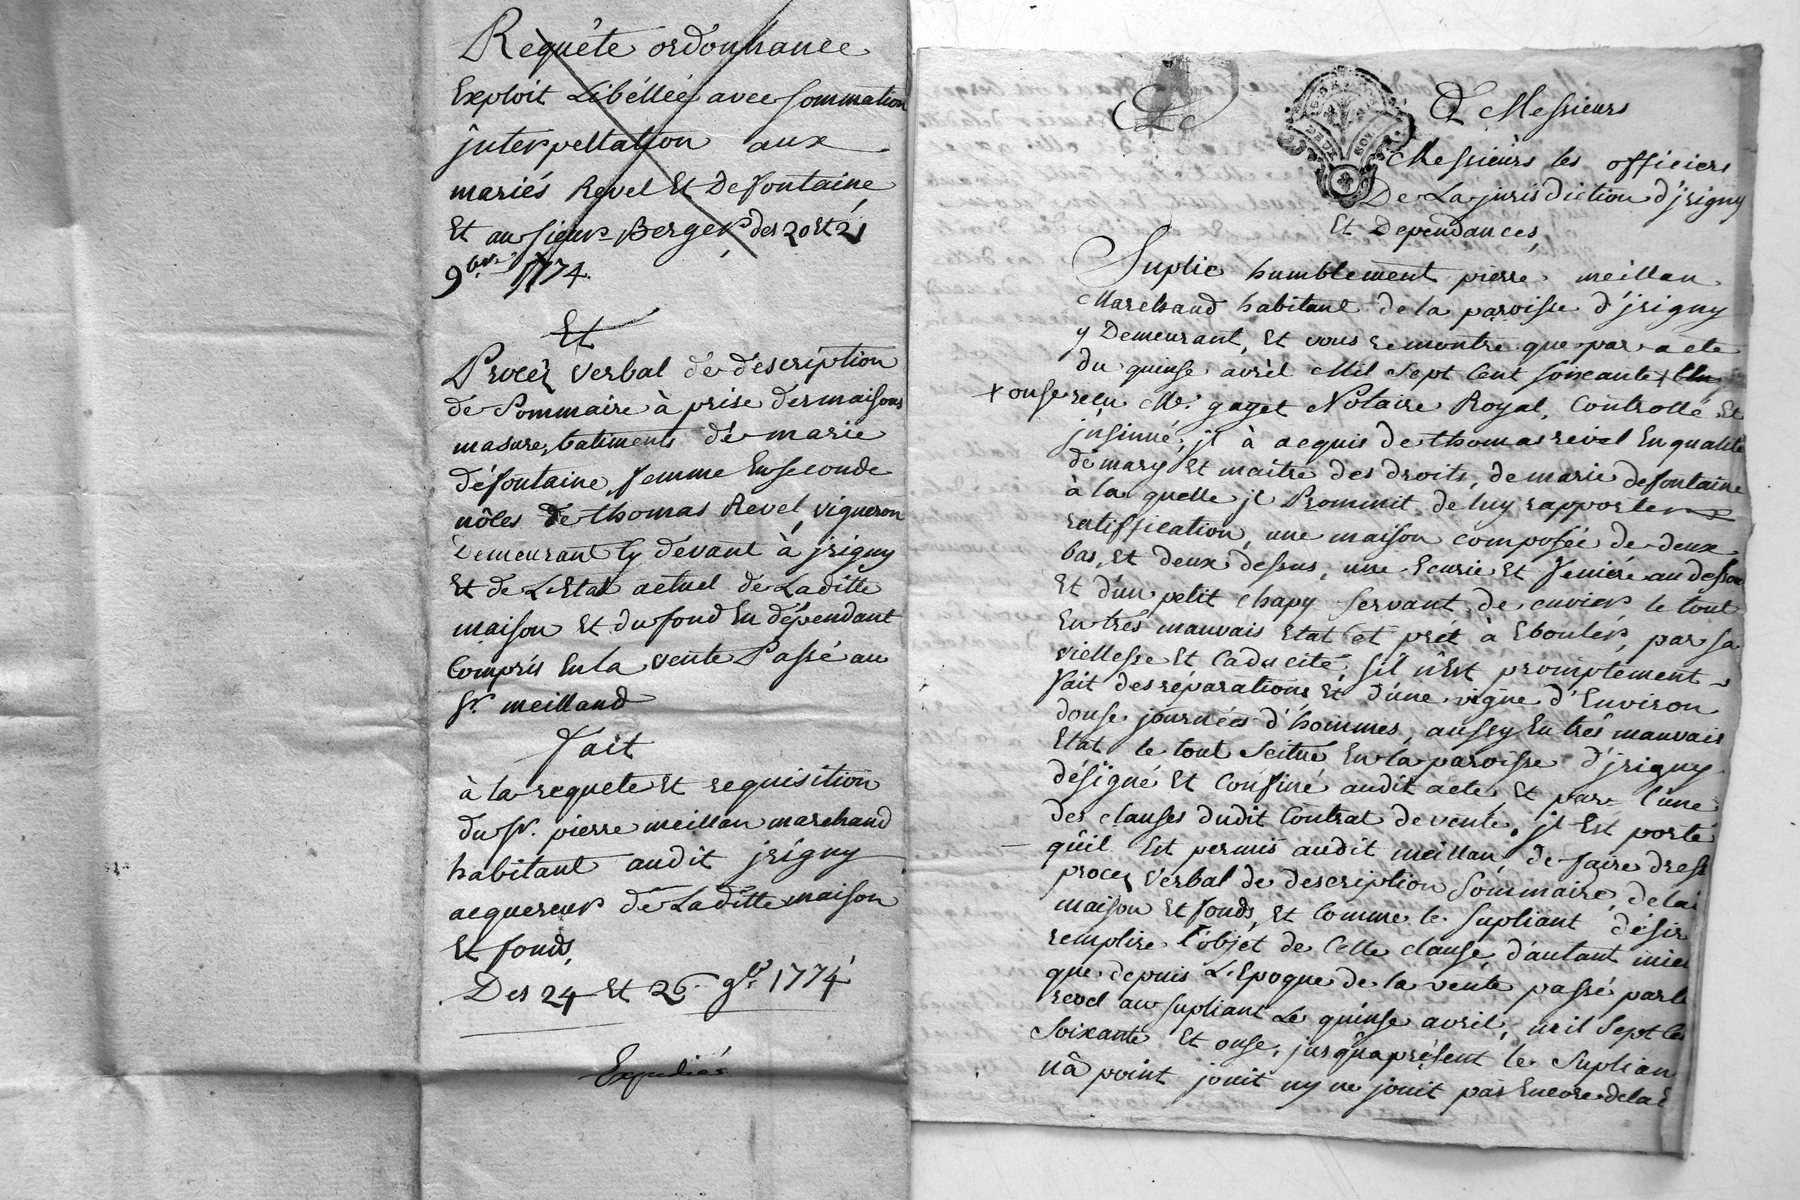 Requête ordonnance
Exploit Libéllée avec sommation
jnterpellation aux
mariés Revel Et Defontaine
Et au sieur Berger des 20 et 21
9bre 1774.
Et
Procez verbal de déscription
de sommaire à prise des maisons
masure, batiments de marie
défontaine, femme En seconde
nôces de thomas Revel, vigneron
Demeurant Cy dévant à jrigny
Et de L'Etat actuel de Laditte
maison Et du fond En dépendant
Compris En la vente Passé au
Sr. meilland
fait
à la requete Et requisition
du Sr. pierre meillan marchand
habitant audit jrigny
acquereur de Laditte maison
Et fonds,
Des 24 Et 26 9bre 1774
Expediés
A Messieurs
Messieurs les officiers
De La jurisdiction d'jrigny
Et Dependances,
Suplie humblement pierre meillan
Marchand habitant de la paroisse d'jrigny
y Demeurant, Et vous remontre que par acte
du quinse avril Mil sept Cent soixante +
+ onse recu Me. gaget Notaire Royal, Controllé Et
jnsinué, jl à acquis de thomas revel En qualité
de mary Et maitre des droits, de marie defontaine
à la quelle jl Prommit de luy rapporter
ratiffication, une maison composée de deux
bas, Et deux dessus, une Ecurie Et feniere au dessu
Et d'un petit chapy servant de cuvier le tout
En très mauvais Etat et prêt à Eboulér, par sa
viellesse Et Caducité, s'il n'Est promptement
fait des réparations Et d'une vigne d'Environ
douse journées d'hommes, aussy En très mauvais
Etat le tout scitué En la paroisse d'jrigny
désigné Et Confiné audit acte Et par l'une
des clauses dudit Contrat de vente, jl Est porté
qu'il Est permis audit meillan de faire dress
procez verbal de description sommaire, de lai
maison Et fonds, Et Comme le supliant désir
remplire l'objet de Cette clause, d'autant miel
que depuis L'Epoque de la vente passé par le
revel au supliant Le quinse avril, mil sept Ce
soixante Et onse, jusqu'a présent le Suplian
n'à point jouit ny ne jouit pas Encore de la